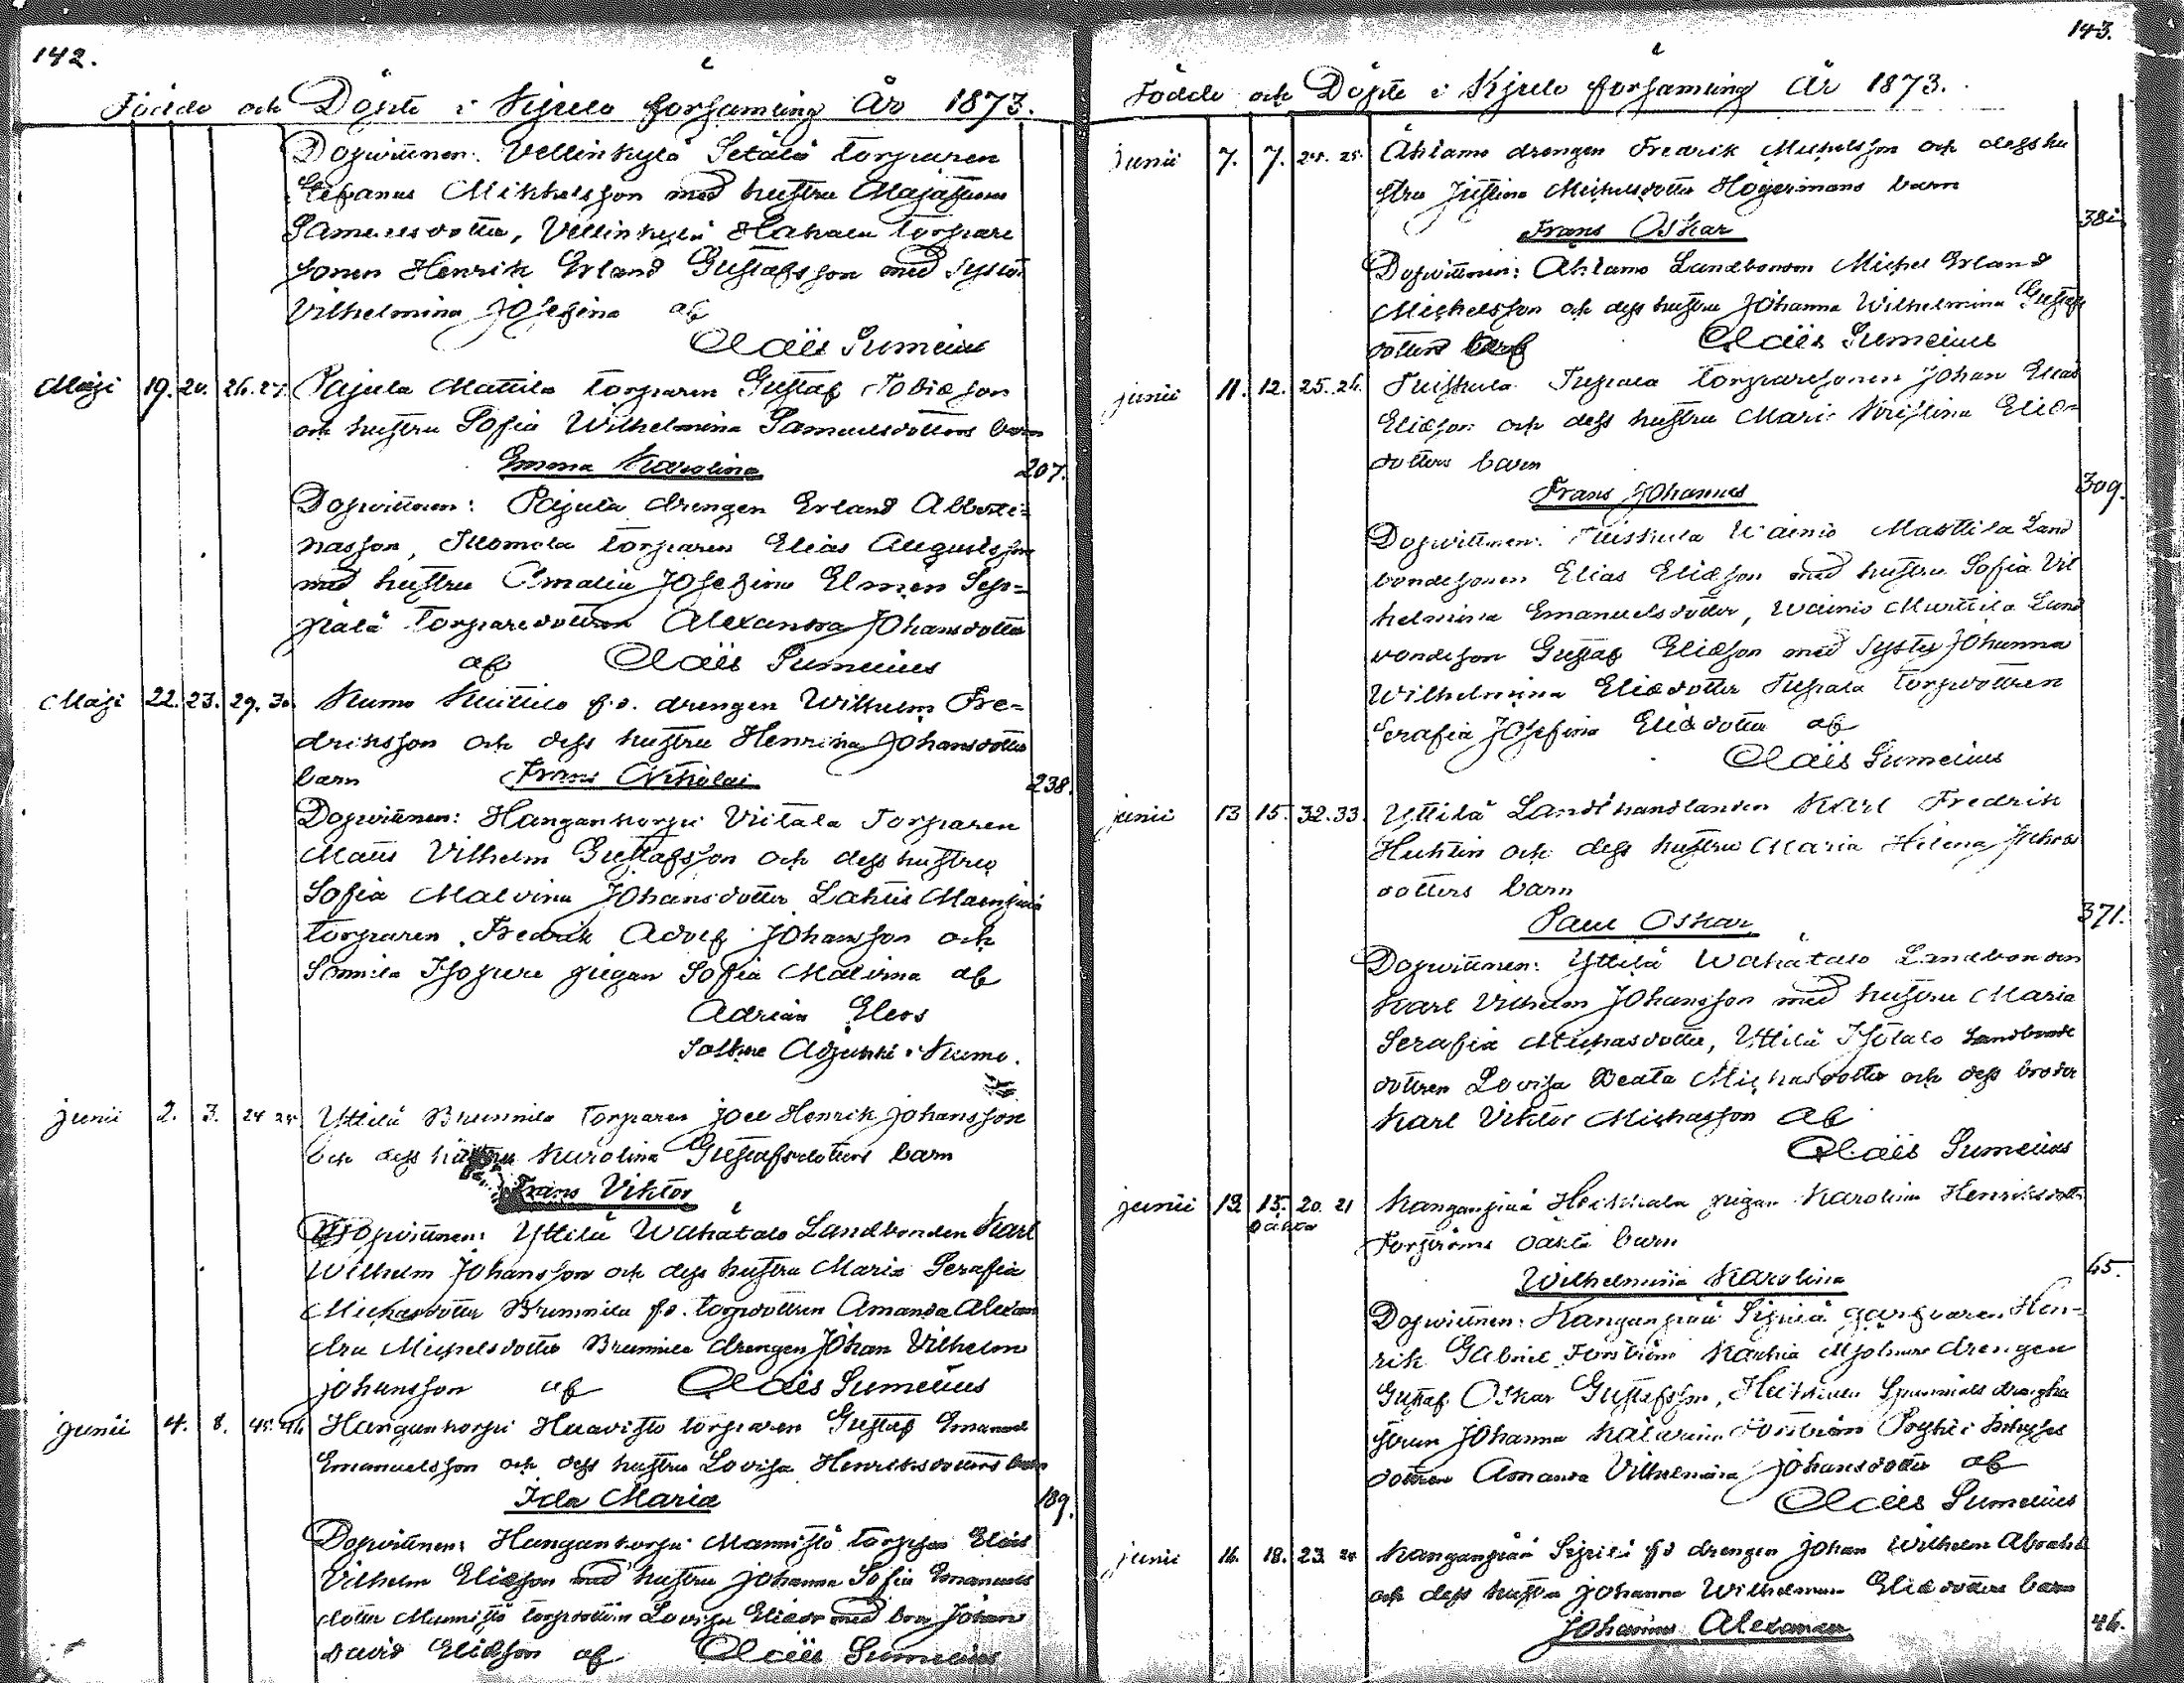 142.
Födde och Döpte i Kjulo församling År 1873.
Dopvittnen: Vellinkylä Setälä torparen
Stefanus Mikkelsson med hustru Majastina
Samuelsdotter, Vellinkylä Hakala torpare
sonen Henrik Erland Gustafsson med syster
Vilhelmina Josefina af
Claës Sumelius
Maji 19. 20. 26. 27. Pajula Mattila torparen Gustaf Tobiæson
och hustru Sofia Wilhelmina Samuelsdotters barn
Emma Karolina 207.
Dopvittnen: Pajula drengen Erland Alberti-
nasson, torparen Elias Augustsson
med hustru Amalia Josefina Elmen Sep-
pälä torparedottren Alexandra Johansdotter
af Claës Sumelius
Maji 22. 23. 29. 30. Kumo f.d. drengen Wilhelm Fre-
driksson och dess hustru Henrika Johansdotter
barn Frans Nikolai 238.
Dopvittnen: Hangankorpi Viitala Torparen
Matts Vilhelm Gustafsson och dess hustru
Sofia Malvina Johansdotter Lahtis
torparen Fredrik Adolf Johansson och
pigan Sofia Malvina af
Adrian
Adjunkt i Kumo.
junii 2. 3. 24 25 Yttilä Brunnila torparen Joel Henrik Johansson
och dess hustru Karolina Gustafsdotters barn
Frans Viktor
Dopvittnen: Yttilä Wahätalo Landbonden Karl
Wilhelm Johansson och dess hustru Maria Serafia
Michasdotter Brunnila f.d. torpdottren Amanda Alexan
dra Michelsdotter Brunnila drengen Johan Vilhelm
Johansson af Claës Sumelius
junii 4. 8. 45. 46. Hangankorpi Haavisto torparen Gustaf Emanuel
Emanuelsson och dess hustru Lovisa Henriksdotters barn
Ida Maria 189.
Dopvittnen: Hangankorpi Mannistö Elias
Vilhelm Eliæson med hustru Johanna Sofia Emanuels
dotter Mannistö torpdottren Lovisa med bror Johan
David Eliæson af Claës Sumelius
143.
Födde och Döpte i Kjulo församling År 1873.
Junii 7. 7. 24. 25. Ahlamo drengen Fredrik Michelsson och dess hu
stru Justina Michelsdotter Högermans barn
Frans Oskar 382
Dopvittnen: Ahlamo Landbonden Michel Erland
Michelsson och dess hustru Johanna Wilhelmina Gustafs
dotter af Claës Sumelius
junii 11. 12. 25. 26. Tuiskula Tupala torparesonen Johan Elias
Eliæson och dess hustru Maria Kristina Eliæ-
dotters barn
Frans Johannes 309.
Dopvittnen: Tuiskula Wainio Mattila Land
bondesonen Elias Eliæson med hustru Sofia Vil
helmina Emanuelsdotter, Wainio Land
bondeson Gustaf Eliæson med syster Johanna
Wilhelmina Eliædotter Tupala torpdottren
Serafia Josefina Eliædotter af
Claës Sumelius
junii 13 15. 32. 33. Yttilä Landthandlanden Karl Fredrik
Huhtin och dess hustru Maria Helena
dotters barn
Paul Oskar 371.
Dopvittnen: Yttilä Wahätalo Landbonden
Karl Vilhelm Johansson med hustru Maria
Serafia Michasdotter, Yttilä Isotalo Landbonde
dottren Lovisa Beata Michasdotter och dess broder
Karl Viktor Michasson af
Claës Sumelius
junii 13 15. 20. 21 Kanganpää Heikkala pigan Karolina Henriksdotter
oäkta
Forströms oäkta barn
Wilhelmina Karolina 65.
Dopvittnen: Kanganpää Sipilä Hen-
rik Gabriel Forström drengen
Gustaf Oskar Gustafsson,
Johanna
dottren Amanda Vilhelmina Johansdotter af
Claës Sumelius
junii 16. 18. 23. 24. Kanganpää Sipilä f.d drengen Johan Wilhelm
och dess hustru Johanna Wilhelmina Eliædotters barn
Johannes Alexander 46.